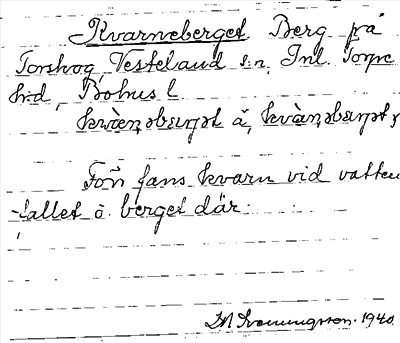 Kvarneberget. Berg på
Torskog, Västerland s:n, Inl. Torpe
h:d, Bohus l.
kvàrnəbærjət å, kvànsbærjət,
Förr fans kvarn vid vatten-
fallet å berget där.
1940.